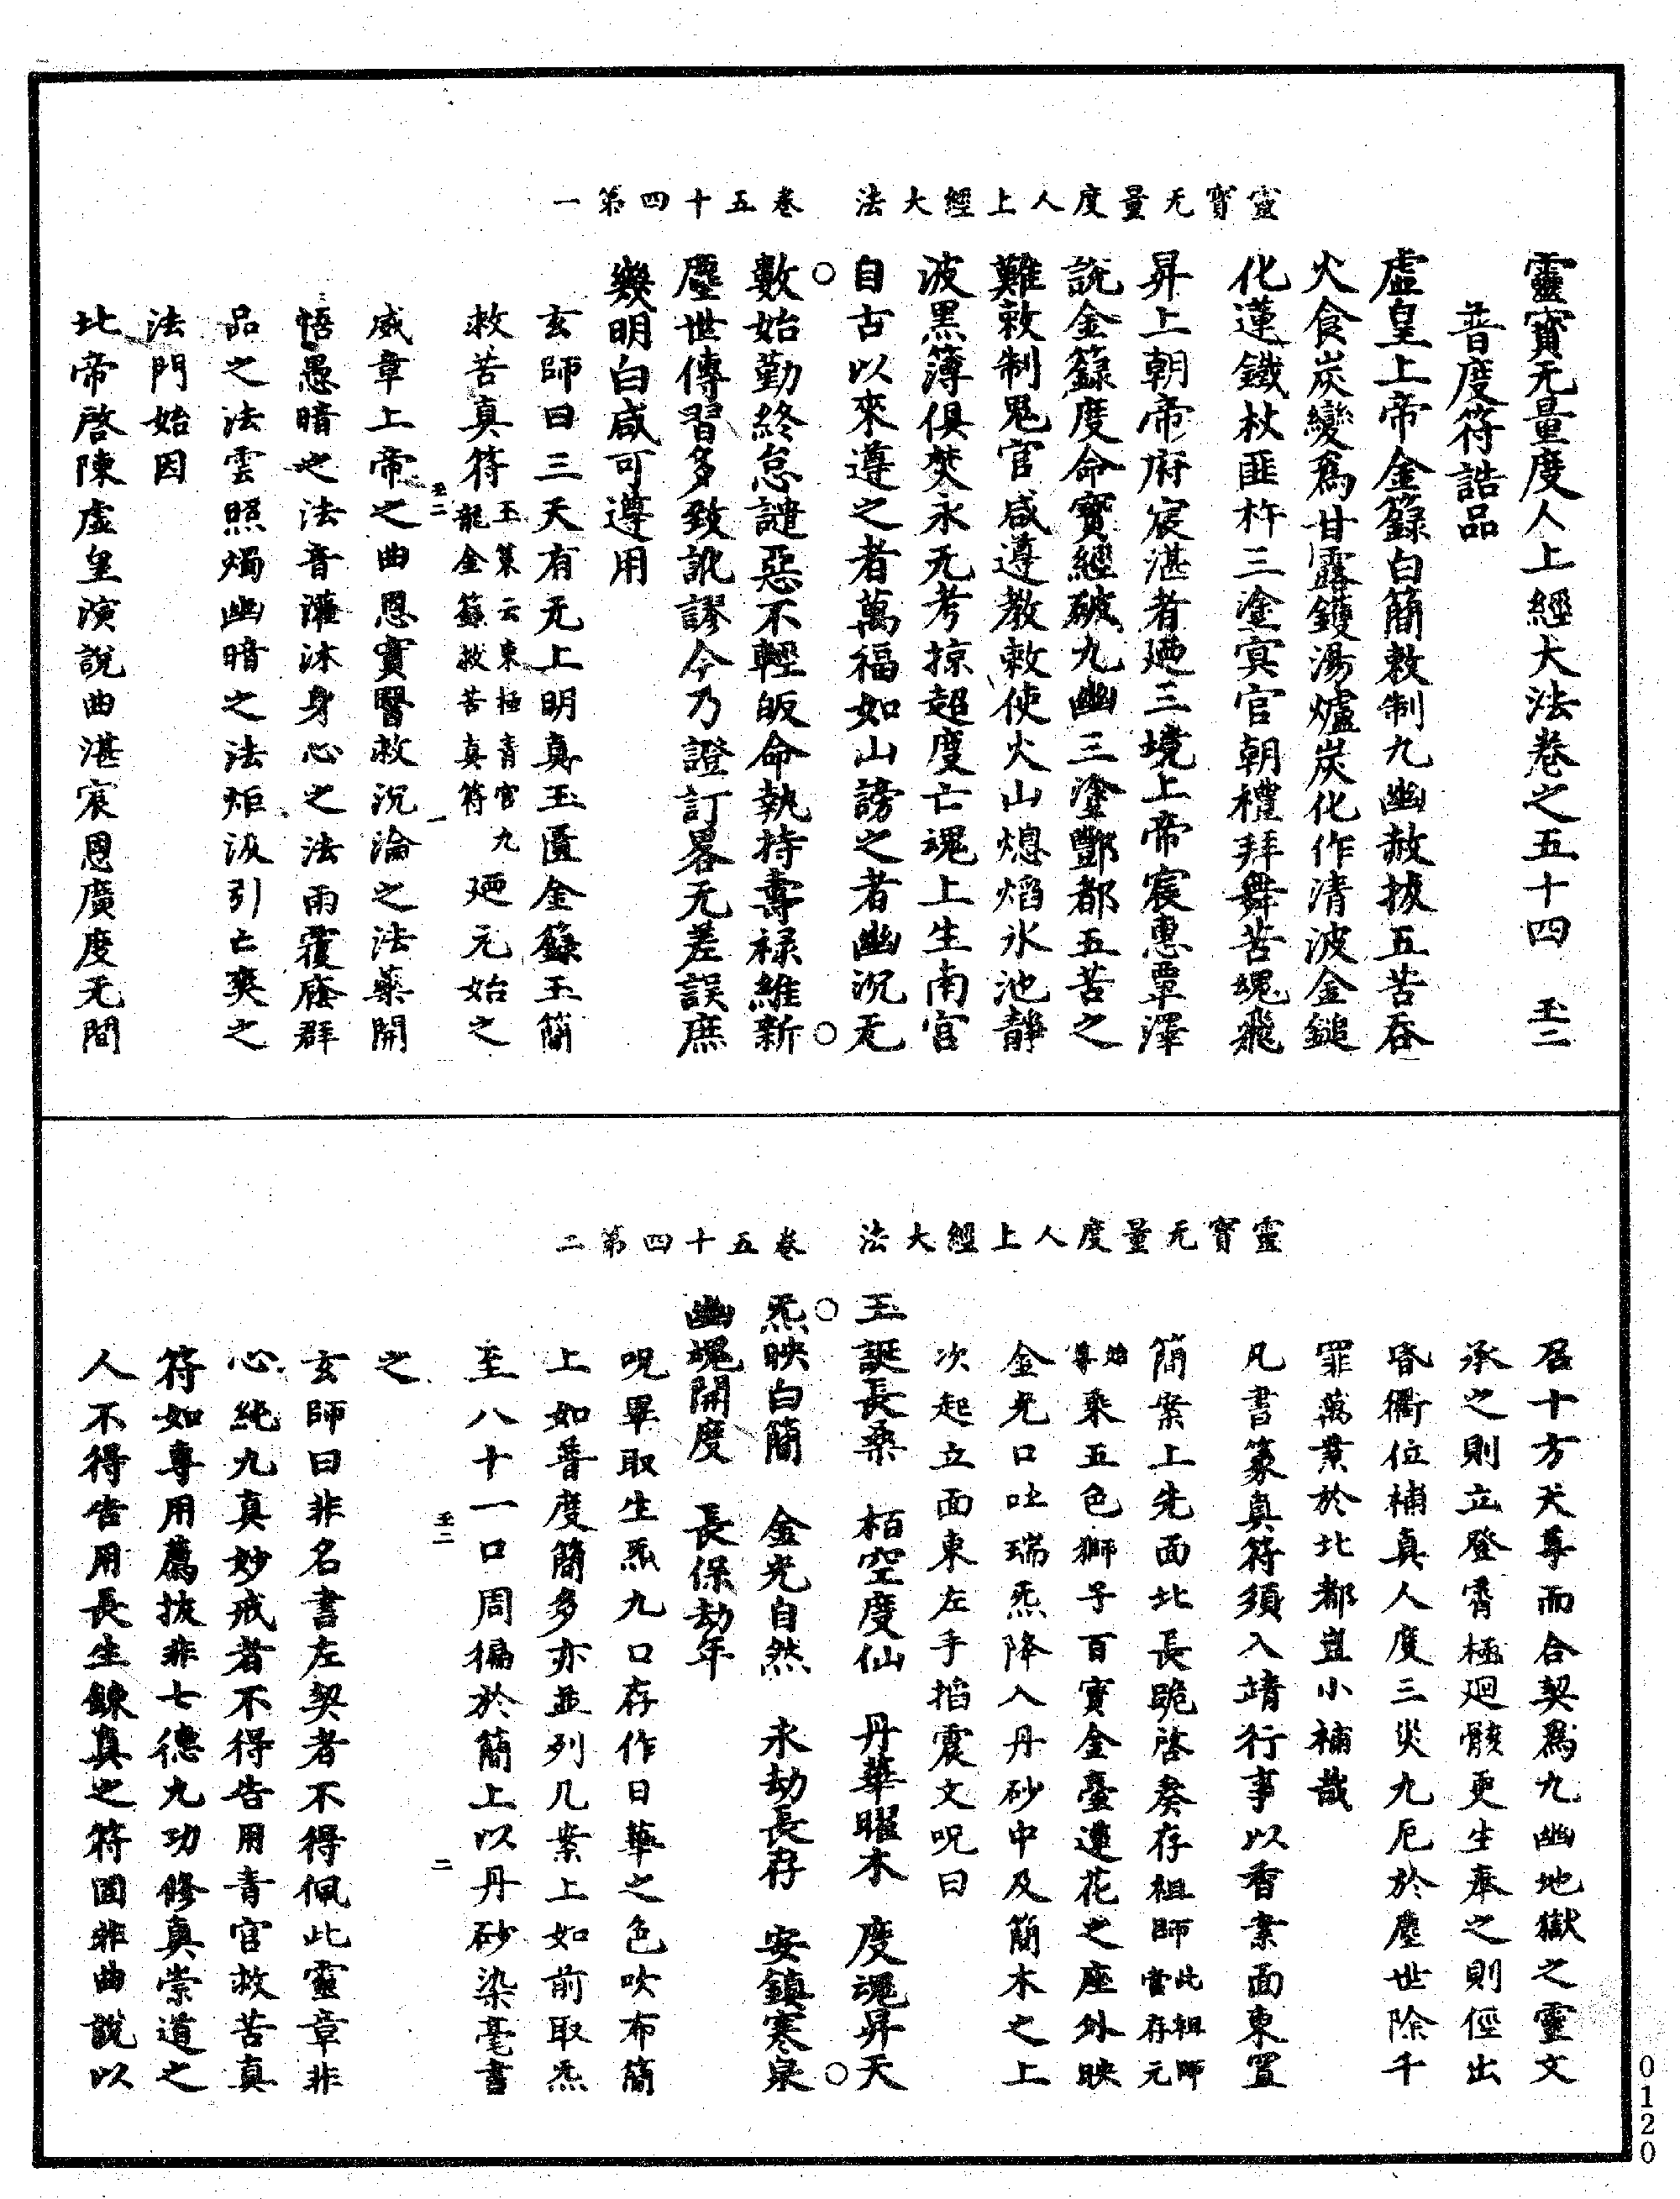 靈寶无量度人上經大法　卷五十四第一
靈寶无量度人上經大法卷之五十四　玉二
普度符誥品
虛皇上帝金籙白簡敕制九幽赦拔五苦吞
火食炭變爲甘露鑊湯爐炭化作清波金鎚
化蓮鐵杖匪杵三塗冥官朝禮拜舞苦魂飛
昇上朝帝府宸湛者廼三境上帝宸惠覃澤
說金籙度命寶經破九幽三塗酆都五苦之
難敕制鬼官咸遵教敕使火山熄焰氷池靜
波黑簿俱焚永无考掠超度亡魂上生南宮
自古以來遵之者萬福如山謗之者幽沉无
○數始勤終怠譴惡不輕皈命執持壽祿維新○
塵世傳習多致訛謬今乃證訂畧无差誤庶
幾明白咸可遵用
玄師曰三天有无上明真玉匱金籙玉簡
救苦真符玉策云東極青宮九龍金籙救苦真符廼元始之
玉二　一
威章上帝之曲恩實醫救沉淪之法藥開
悟愚暗之法音灌沐身心之法雨覆廕群
品之法雲照燭幽暗之法炬汲引亡爽之
法門始因
北帝啓陳虛皇演說曲湛宸恩廣度无間
靈寶无量度人上經大法　卷五十四第二
召十方天尊而合契爲九幽地獄之靈文
承之則立登霄極廻骸更生奉之則徑出
昏衢位補真人度三災九厄於塵世除千
罪萬業於北都豈小補哉
凡書篆真符須入靖行事以香案面東置
簡案上先面北長跪啓奏存祖師此祖師當存元
始尊乘五色獅子百寶金臺蓮花之座外映
金光口吐瑞炁降入丹砂中及簡木之上
次起立面東左手掐震文呪曰
玉誕長桑　栢空度仙　丹華曜木　度魂昇天
○炁映白簡　金光自然　永劫長存　安鎮寒泉○
幽魂開度　長保劫年
呪畢取生炁九口存作日華之色吹布簡
上如普度簡多亦並列几案上如前取炁
至八十一口周徧於簡上以丹砂染毫書
玉二　二
之
玄師曰非名書左契者不得佩此靈章非
心純九真妙戒者不得告用青宮救苦真
符如專用薦拔非七德九功修真崇道之
人不得告用長生鍊真之符固非曲說以
0120